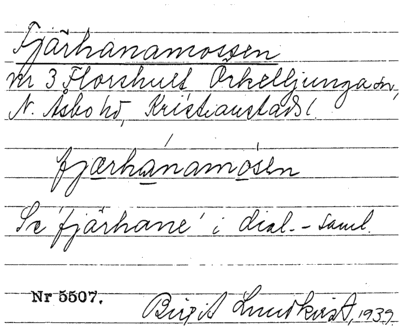 Fjärhanamossen
nr 3 Florshult Örkelljunga sn,
N. Åsbo hd, Kristianstads l
fjærhánamósen
Se 'fjärhane' i dial.-saml.
Nr 5507.
Birgit Lundkvist, 1939